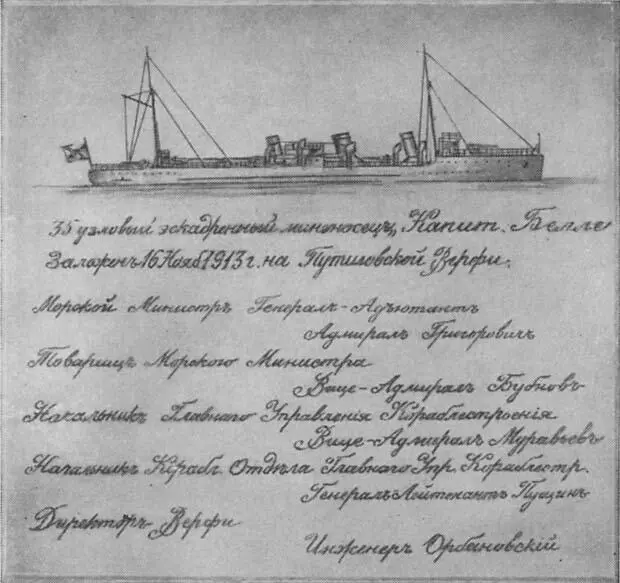 35 узловый эскадренный миноносецъ „Капит. Белле“
Заложенъ 16 Нояб. 1913 г. на Путиловской Верфи.
Морской Министръ Генералъ-Адъютантъ
Адмиралъ Григоровичъ
Товарищъ Морского Министра
Вице-Адмиралъ Бубновъ
Начальникъ Главнаго Управленія Кораблестроенія
Вице-Адмиралъ Муравьевъ
Начальникъ Корабл. Отдѣла Главнаго Упр. Кораблестр.
Генералъ-Лейтенантъ Пущинъ
Директоръ Верфи
Инженеръ Орбановскій